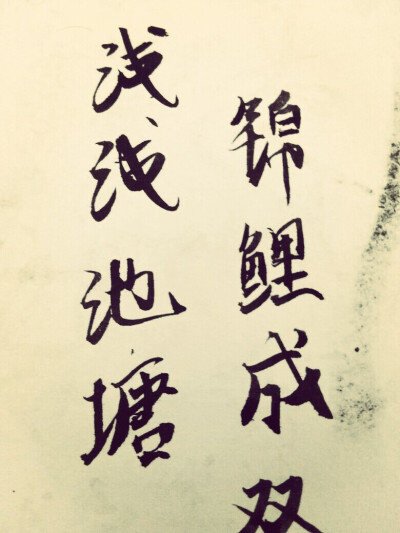 浅浅池塘
锦鲤成双